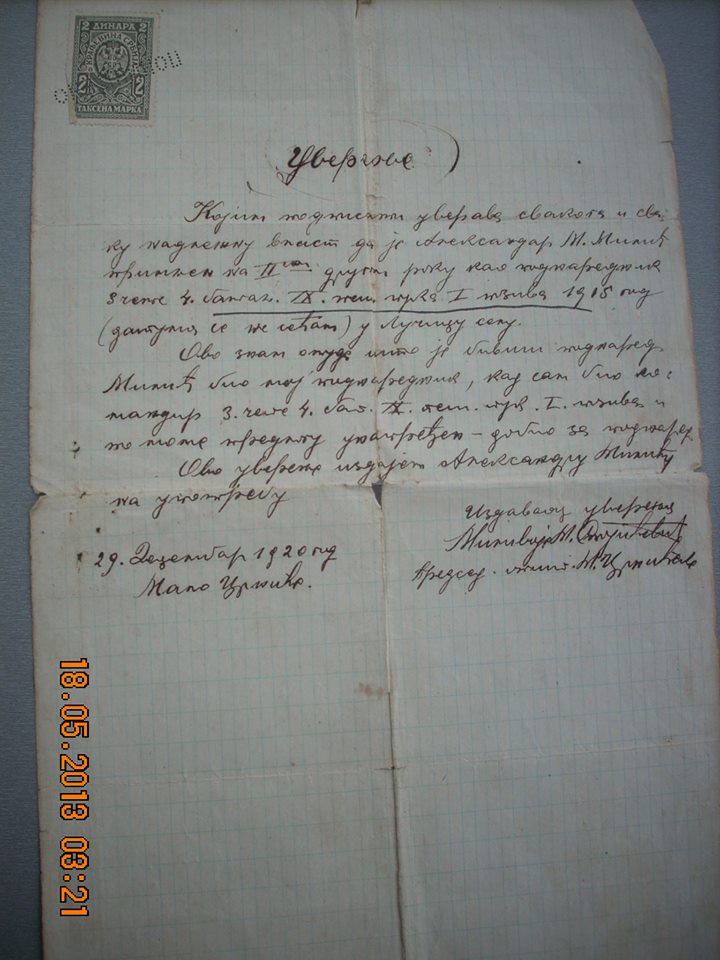 2 ДИНАРА 2
КРАЉЕВИНА СРБИЈА
2 2
ТАКСЕНА МАРКА
Уверење
Којим потписати уверава свакога и сва-
ку надлежну власт да је Александар М. Минић
на II другом року као поднаредник
3 чете 4. батаљ. IX. пеш. пука I позива 1915 год
(датума се не сећам) у селу.
Ово знам отуда што је бивши поднаред.
Минић био мој поднаредник, кад сам био ко-
мандир 3. чете 4. бат. IX. пеш. пук. I. позива и
по моме предлогу унапређен – добио за поднаред.
Ово уверење издајем Александру Минићу
на употребу
Издавалац уверења
29. Децембар 1920 год
Мало Црниће.
Миливоје М.
Председ. општ. М. Црнићске
18.05.2013 03:21